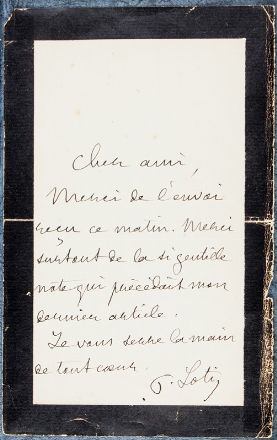 Cher ami,
Merci de l'envoi
reçu ce matin. Merci
surtout de la si gentille
note qui précédait mon
dernier article.
Je vous serre la main
de tout cœur
P. Loti